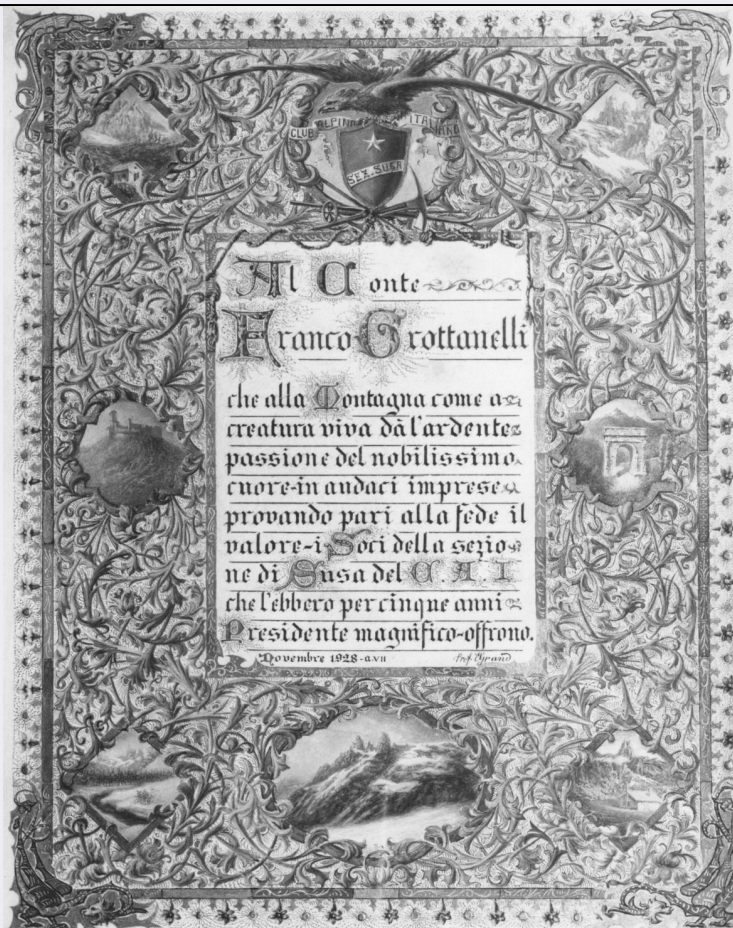 CLUB ALPINO ITALIANO
SEZ. SUSA
Al Conte
Franco Grottanelli
che alla Montagna come a
creatura viva dà l'ardente
passione del nobilissimo
cuore-in audaci imprese
provando pari alla fede il
valore-i Soci della sezio
ne di Susa del C. A. I
che l'ebbero per cinque anni
Presidente magnifico-offrono.
Novembre 1928-a.VII